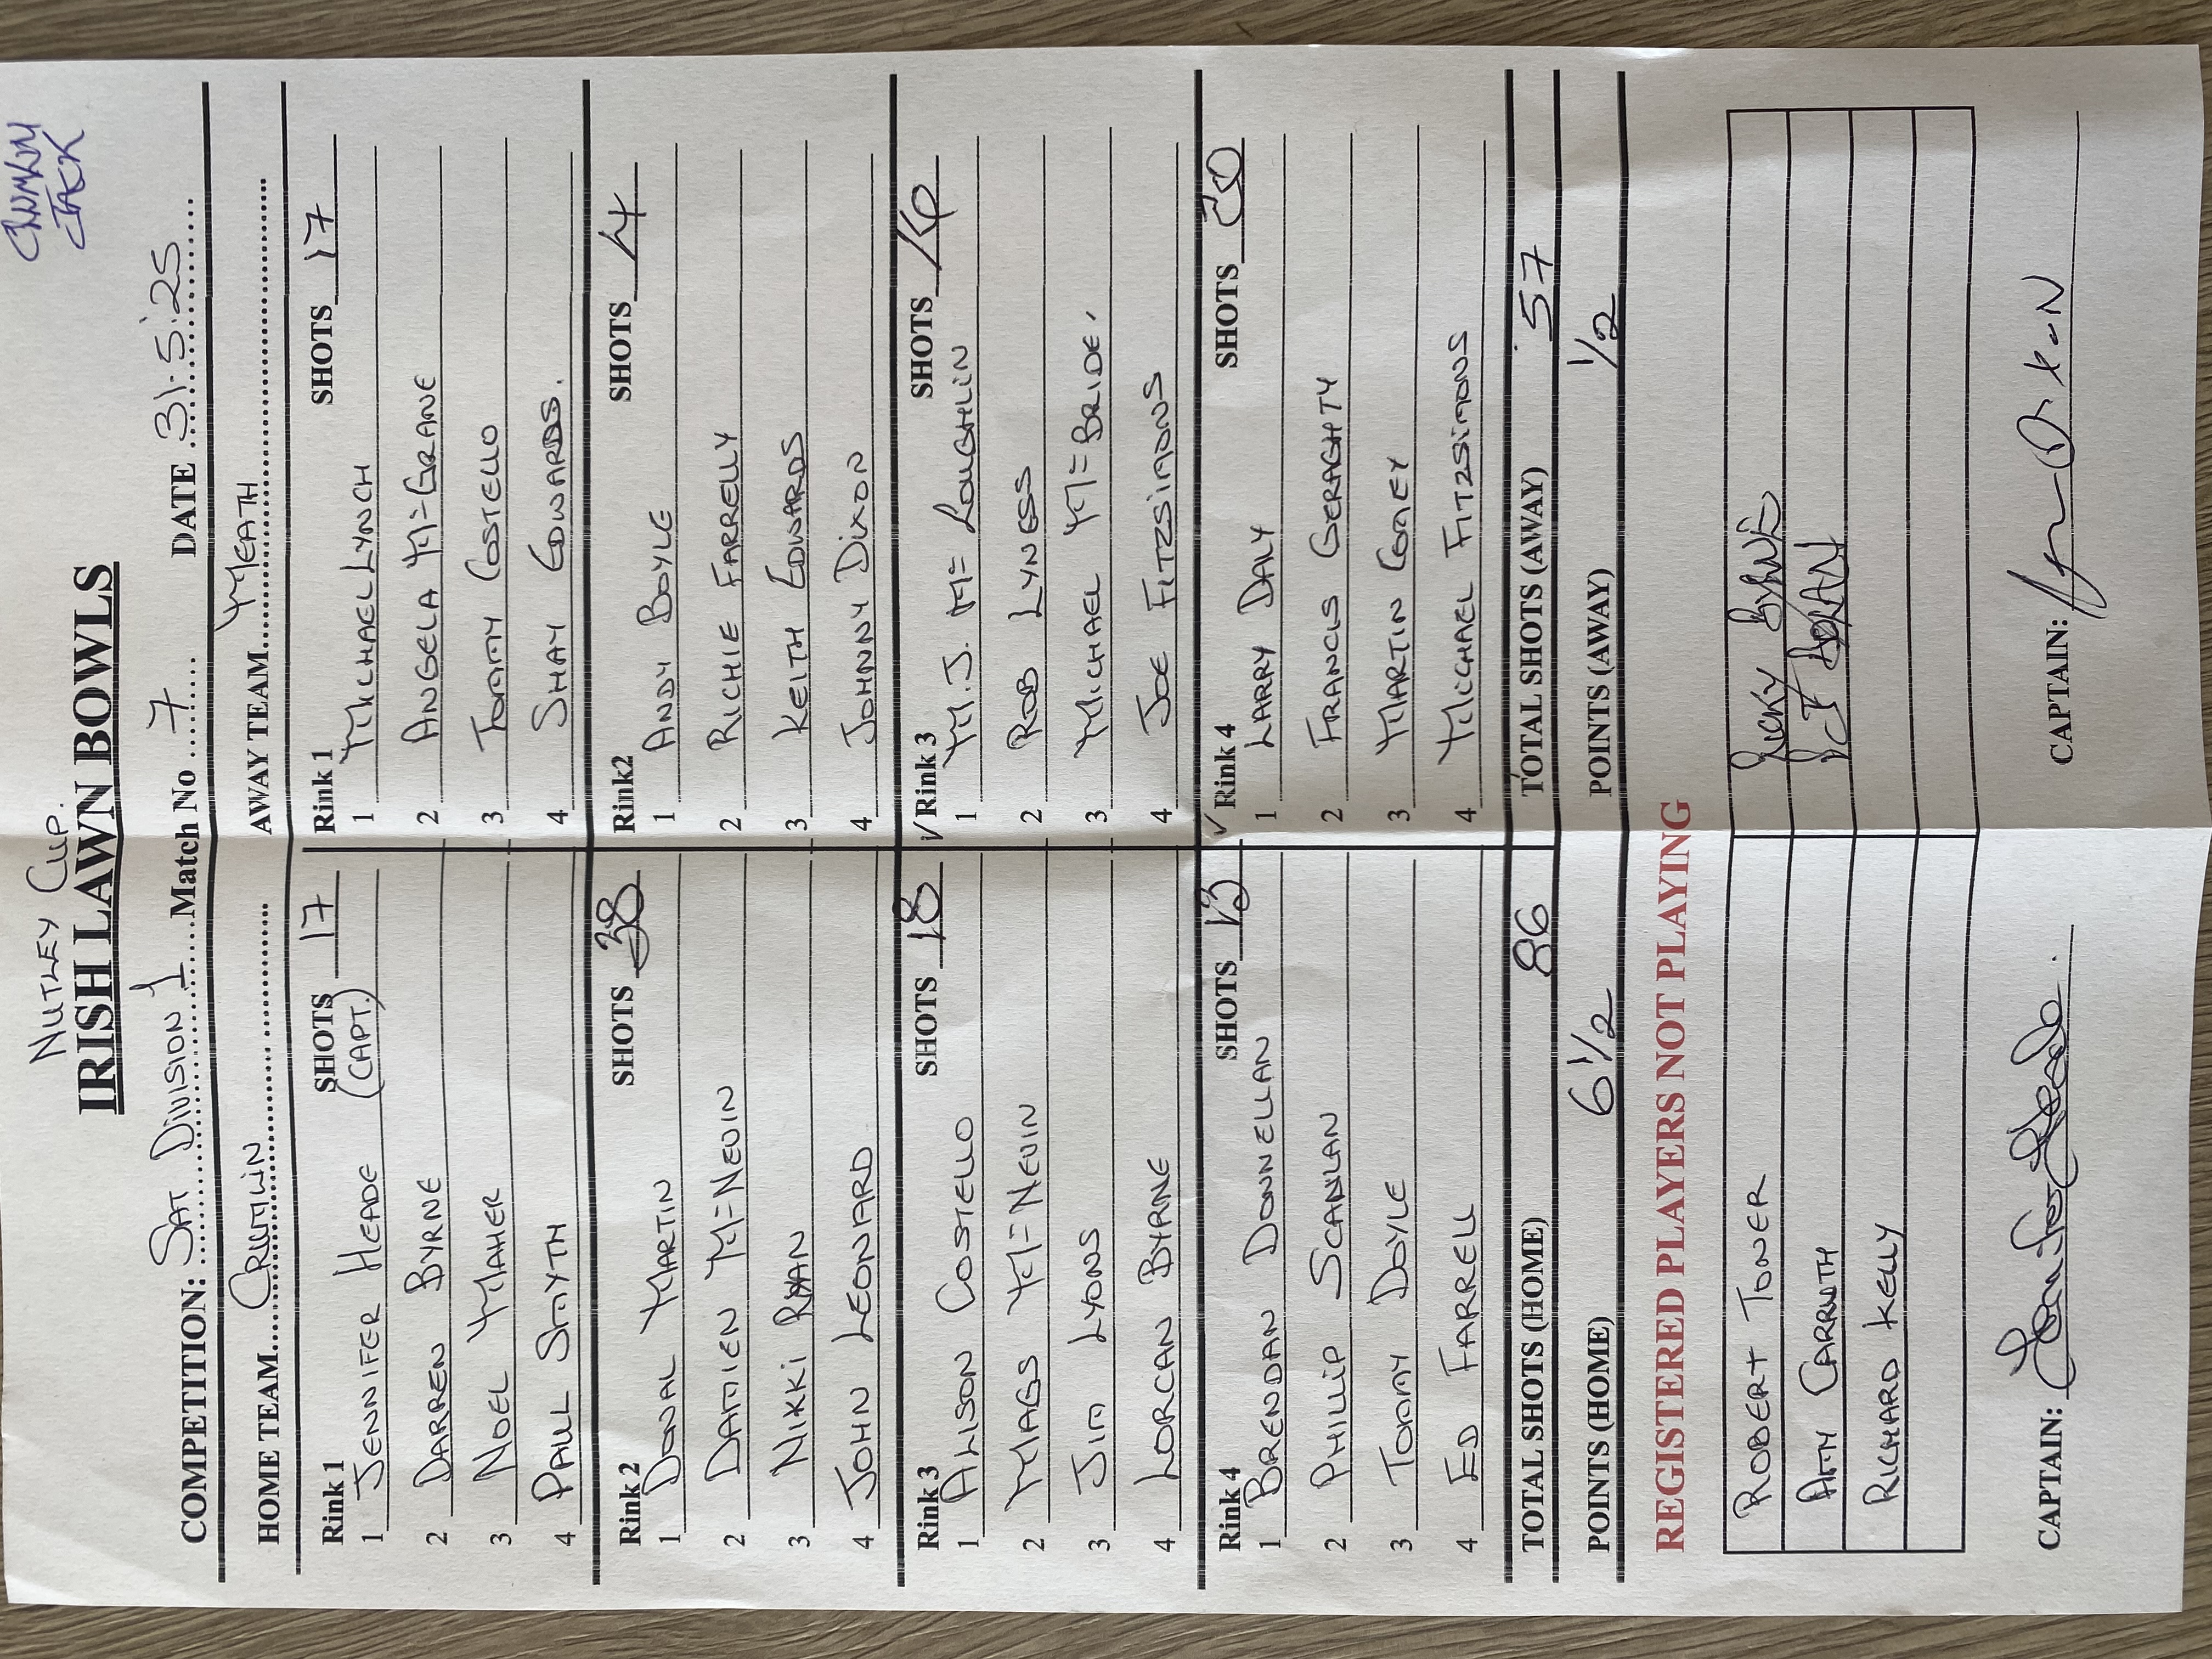 NUTLEY CUP.
IRISH LAWN BOWLS
JACK
COMPETITION: SAT DIVISION 1 Match No 7 DATE 31.5.25
HOME TEAM CRUMLIN AWAY TEAM MEATH
Rink 1 SHOTS 17 Rink 1 SHOTS 17
1 JENNIFER HEADE (CAPT.) 1 MICHAEL LYNCH
2 DARREN BYRNE 2 ANGELA Mc GRANE
3 NOEL MAHER 3 TOMMY COSTELLO
4 PAUL SMYTH 4 SHAY EDWARDS.
Rink 2 SHOTS 38 Rink2 SHOTS 4
1 DONAL MARTIN 1 ANDY BOYLE
2 DAMIEN Mc NEVIN 2 RICHIE FARRELLY
3 NIKKI RYAN 3 KEITH EDWARDS
4 JOHN LEONARD 4 JOHNNY DIXON
Rink 3 SHOTS 18 ✓ Rink 3 SHOTS 16
1 ALISON COSTELLO 1 M.J. Mc LOUGHLIN
2 MAGS Mc NEVIN 2 ROB LYNESS
3 JIM LYONS 3 MICHAEL Mc BRIDE
4 LORCAN BYRNE 4 JOE FITZSIMONS
Rink 4 SHOTS 13 ✓ Rink 4 SHOTS 20
1 BRENDAN DONNELLAN 1 LARRY DALY
2 PHILLIP SCANLAN 2 FRANCIS GERAGHTY
3 TOMMY DOYLE 3 MARTIN COMEY
4 ED FARRELL 4 MICHAEL FITZSIMONS
TOTAL SHOTS (HOME) 86 TOTAL SHOTS (AWAY) 57
POINTS (HOME) 6 1/2 POINTS (AWAY) 1/2
REGISTERED PLAYERS NOT PLAYING
ROBERT TONER BYRNE
AMY CARRUTH
RICHARD KELLY
CAPTAIN: CAPTAIN: